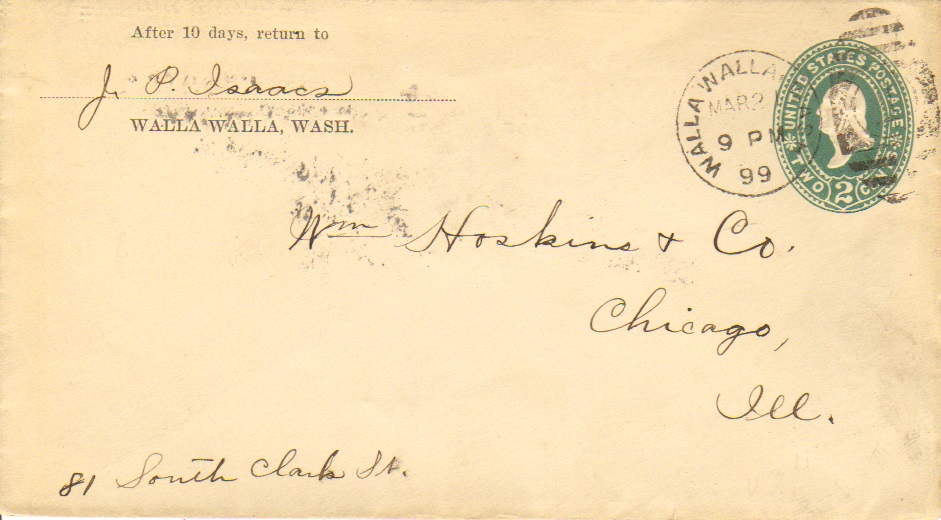 After 10 days, return to
J. P. Isaacs
WALLA WALLA, WASH.
WALLA WALLA
MAR 2
9 PM
99
UNITED STATES POSTAGE
TWO 2
Wm Hoskins & Co.
Chicago,
Ill.
81 South Clark St.